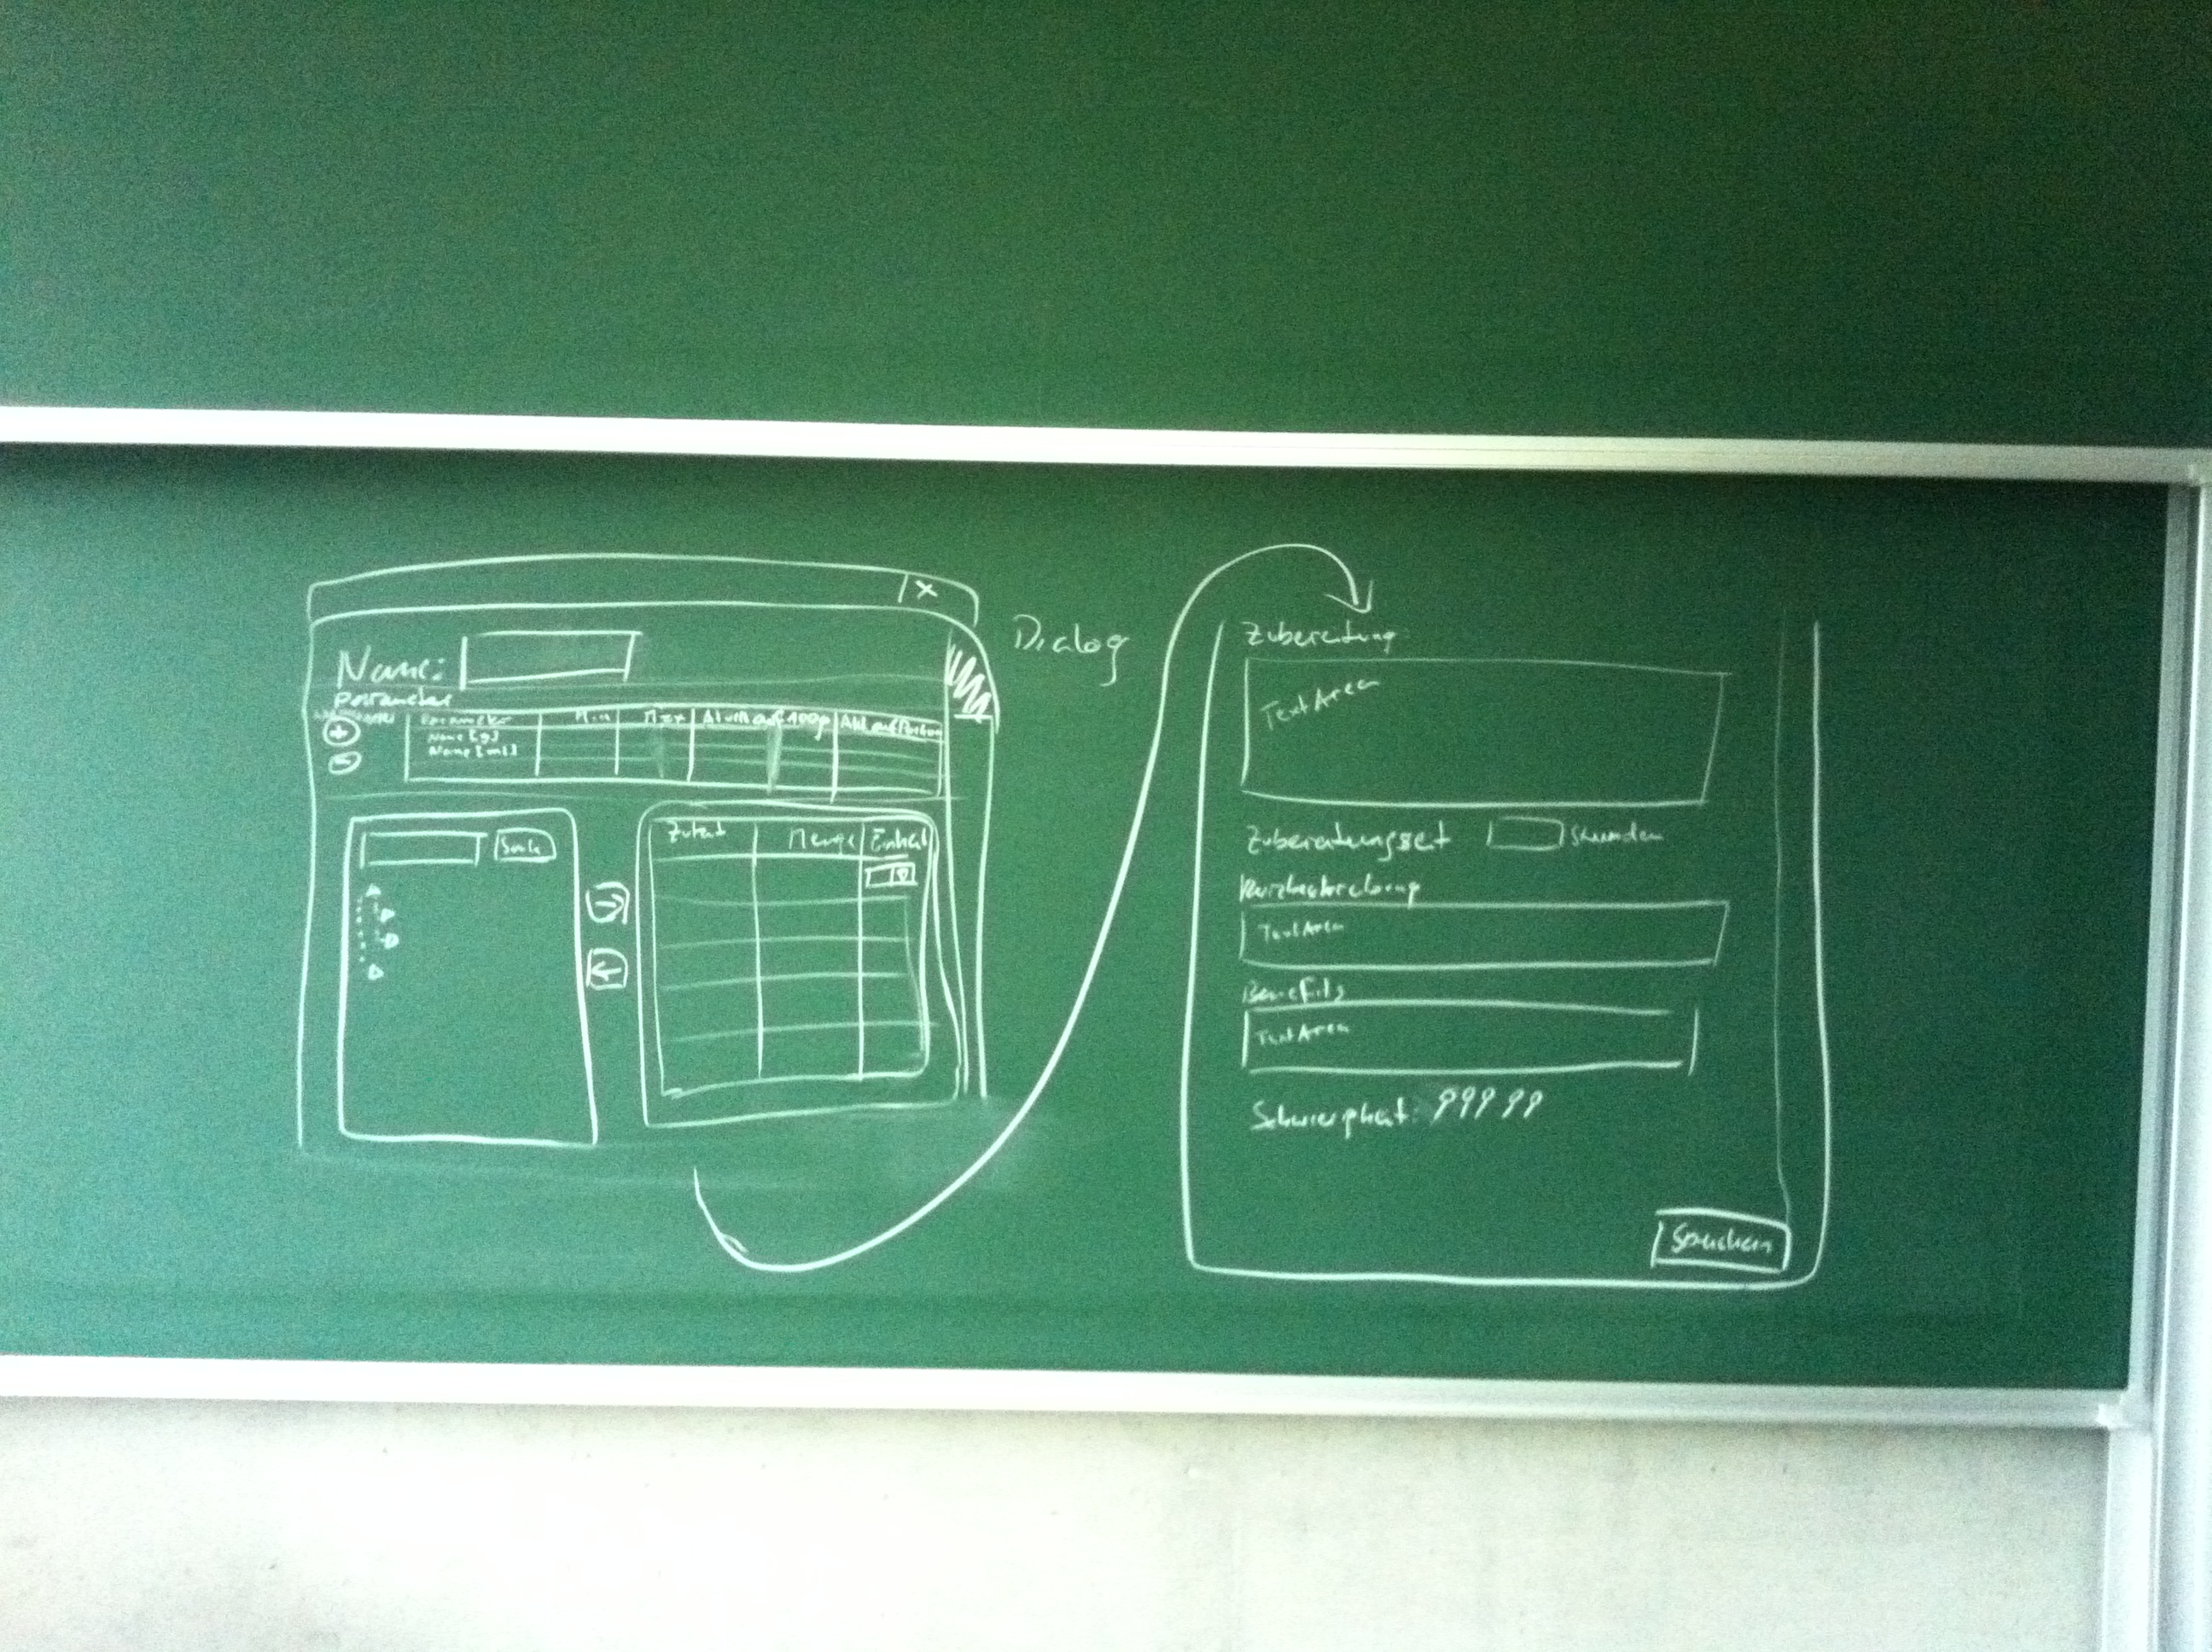 X
Dialog
Name:
Parameter
Parameter Min Max Aktuell auf 100g Akt. auf Portion
Name [g]
Name [ml]
Suche
Zutat Menge Einheit
Zubereitung:
TextArea
Zubereitungszeit Stunden
Kurzbeschreibung
TextArea
Benefits
TextArea
Schwierigkeit:
Speichern